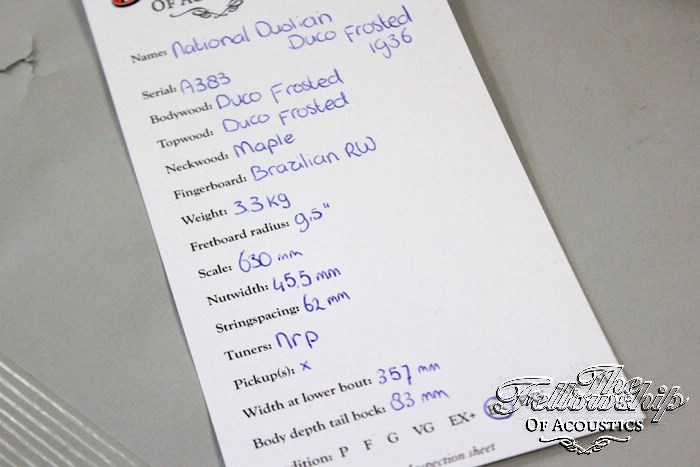 OF ACOUSTICS
Name: National Duolian
Duco Frosted
1936
Serial: A383
Bodywood: Duco Frosted
Topwood: Duco Frosted
Neckwood: Maple
Fingerboard: Brazilian RW
Weight: 3.3 kg
Fretboard radius: 9,5"
Scale: 630 mm
Nutwidth: 45.5 mm
Stringspacing: 62 mm
Tuners: nrp
Pickup(s): x
Width at lower bout: 357 mm
Body depth tail bock: 83 mm
dition: P F G VG EX+
spection sheet
The
Fellowship
OF ACOUSTICS